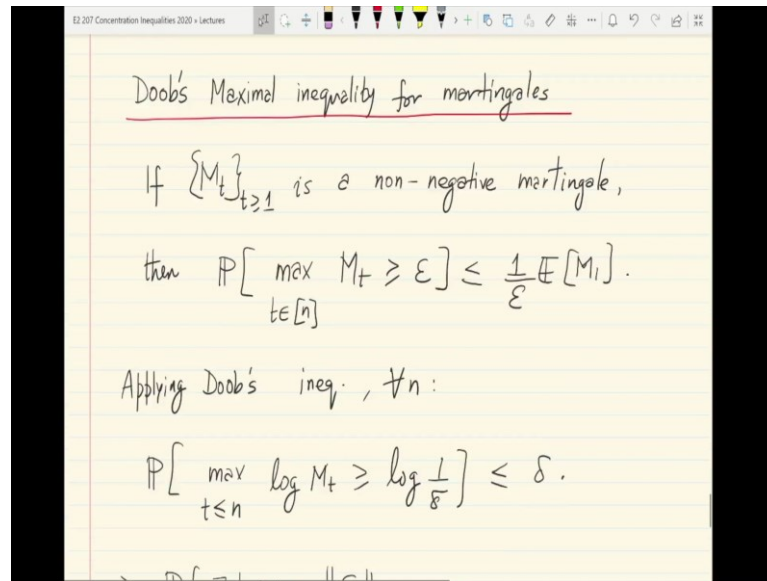 E2 207 Concentration Inequalities 2020 » Lectures
Doob's Maximal inequality for martingales
If {M_t}_{t≥1} is a non-negative martingale,
then ℙ[ max_{t∈[n]} M_t ≥ ε ] ≤ 1/ε 𝔼[M_1].
Applying Doob's ineq., ∀n:
ℙ[ max_{t≤n} log M_t ≥ log 1/δ ] ≤ δ.